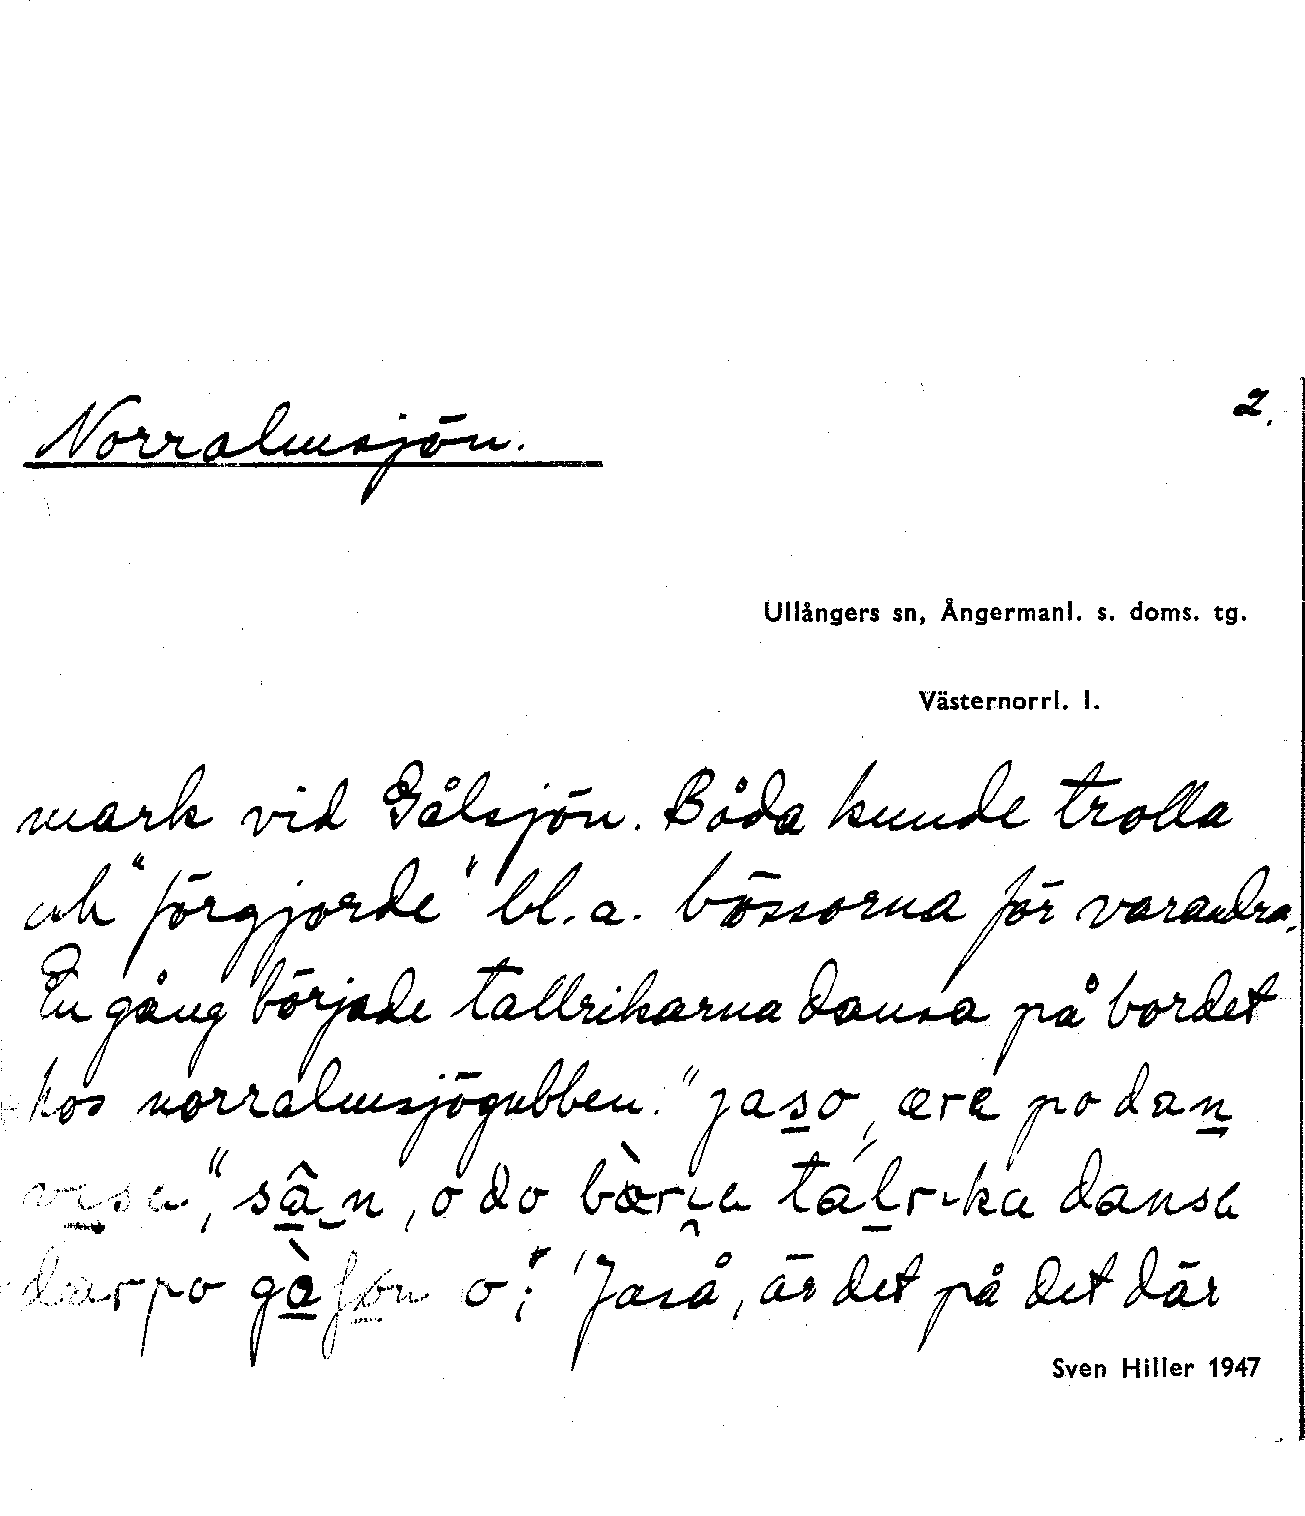 Norralmsjön.
2.
Ullångers sn, Ångermanl. s. doms. tg.
Västernorrl. l.
mark vid Gålsjön. Båda kunde trolla
och "förgjorde" bl.a. bössorna för varandra.
En gång började tallrikarna dansa på bordet
hos norralmsjögubben. "jaso, ære po dan
visa", sa̱n, o do bæria talrika dansa
darpo o; "Jaså, är det på det där
Sven Hiller 1947